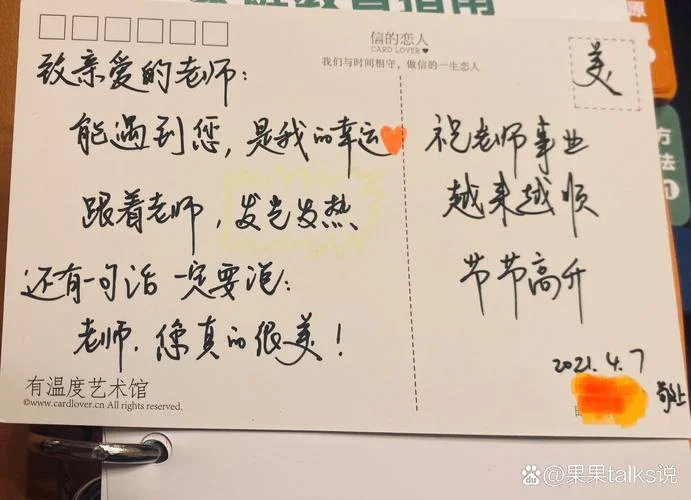 信的恋人
CARD LOVER
我们与时间相守，做信的一生恋人
美
致亲爱的老师：
能遇到您，是我的幸运
跟着老师，发光发热
还有一句话 一定要说：
老师，您真的很美！
祝老师事业
越来越顺
节节高升
2021.4.7
敬上
有温度艺术馆
©www.cardlover.cn All rights reserved.
方法1
原
@果果talks说